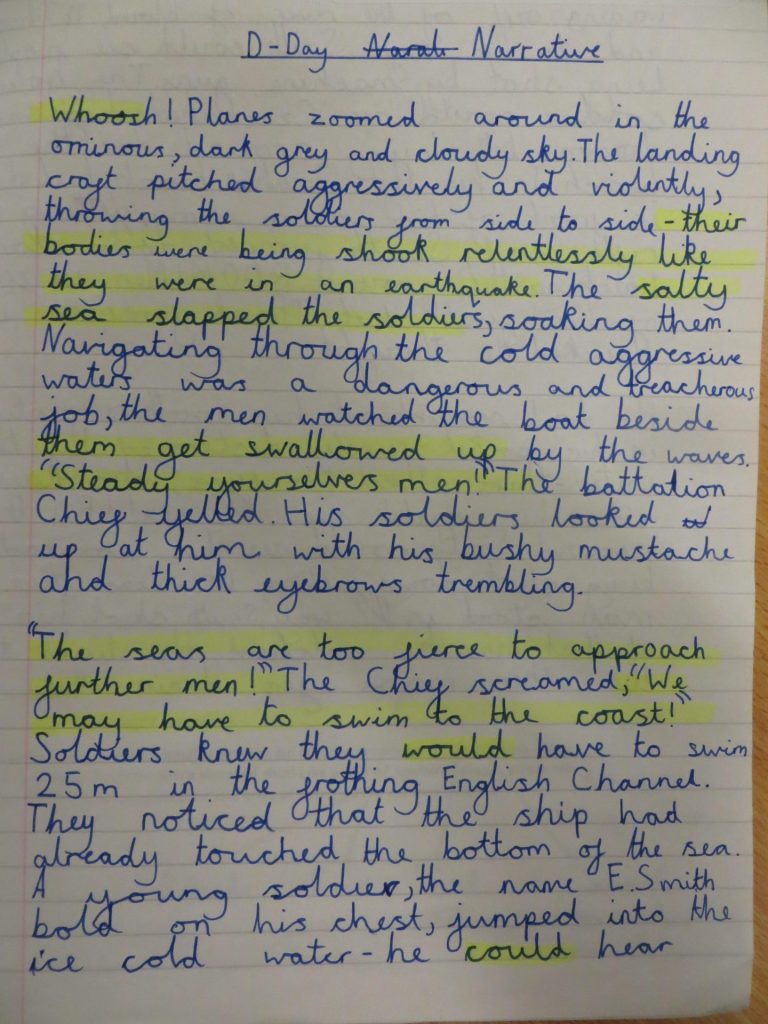 D-Day Narati Narrative
Whoosh! Planes zoomed around in the
ominous, dark grey and cloudy sky. The landing
craft pitched aggressively and violently,
throwing the soldiers from side to side - their
bodies were being shook relentlessly like
they were in an earthquake. The salty
sea slapped the soldiers, soaking them.
Navigating through the cold aggressive
waters was a dangerous and treacherous
job, the men watched the boat beside
them get swallowed up by the waves.
"Steady yourselvers men!" The battation
Chief yelled. His soldiers looked
up at him with his bushy mustache
and thick eyebrows trembling.
"The seas are too fierce to approach
further men!" The Chief screamed, "We
may have to swim to the coast!"
Soldiers knew they would have to swim
25m in the frothing English Channel.
They noticed that the ship had
already touched the bottom of the sea.
A young soldier, the name E.Smith
bold on his chest, jumped into the
ice cold water - he could hear